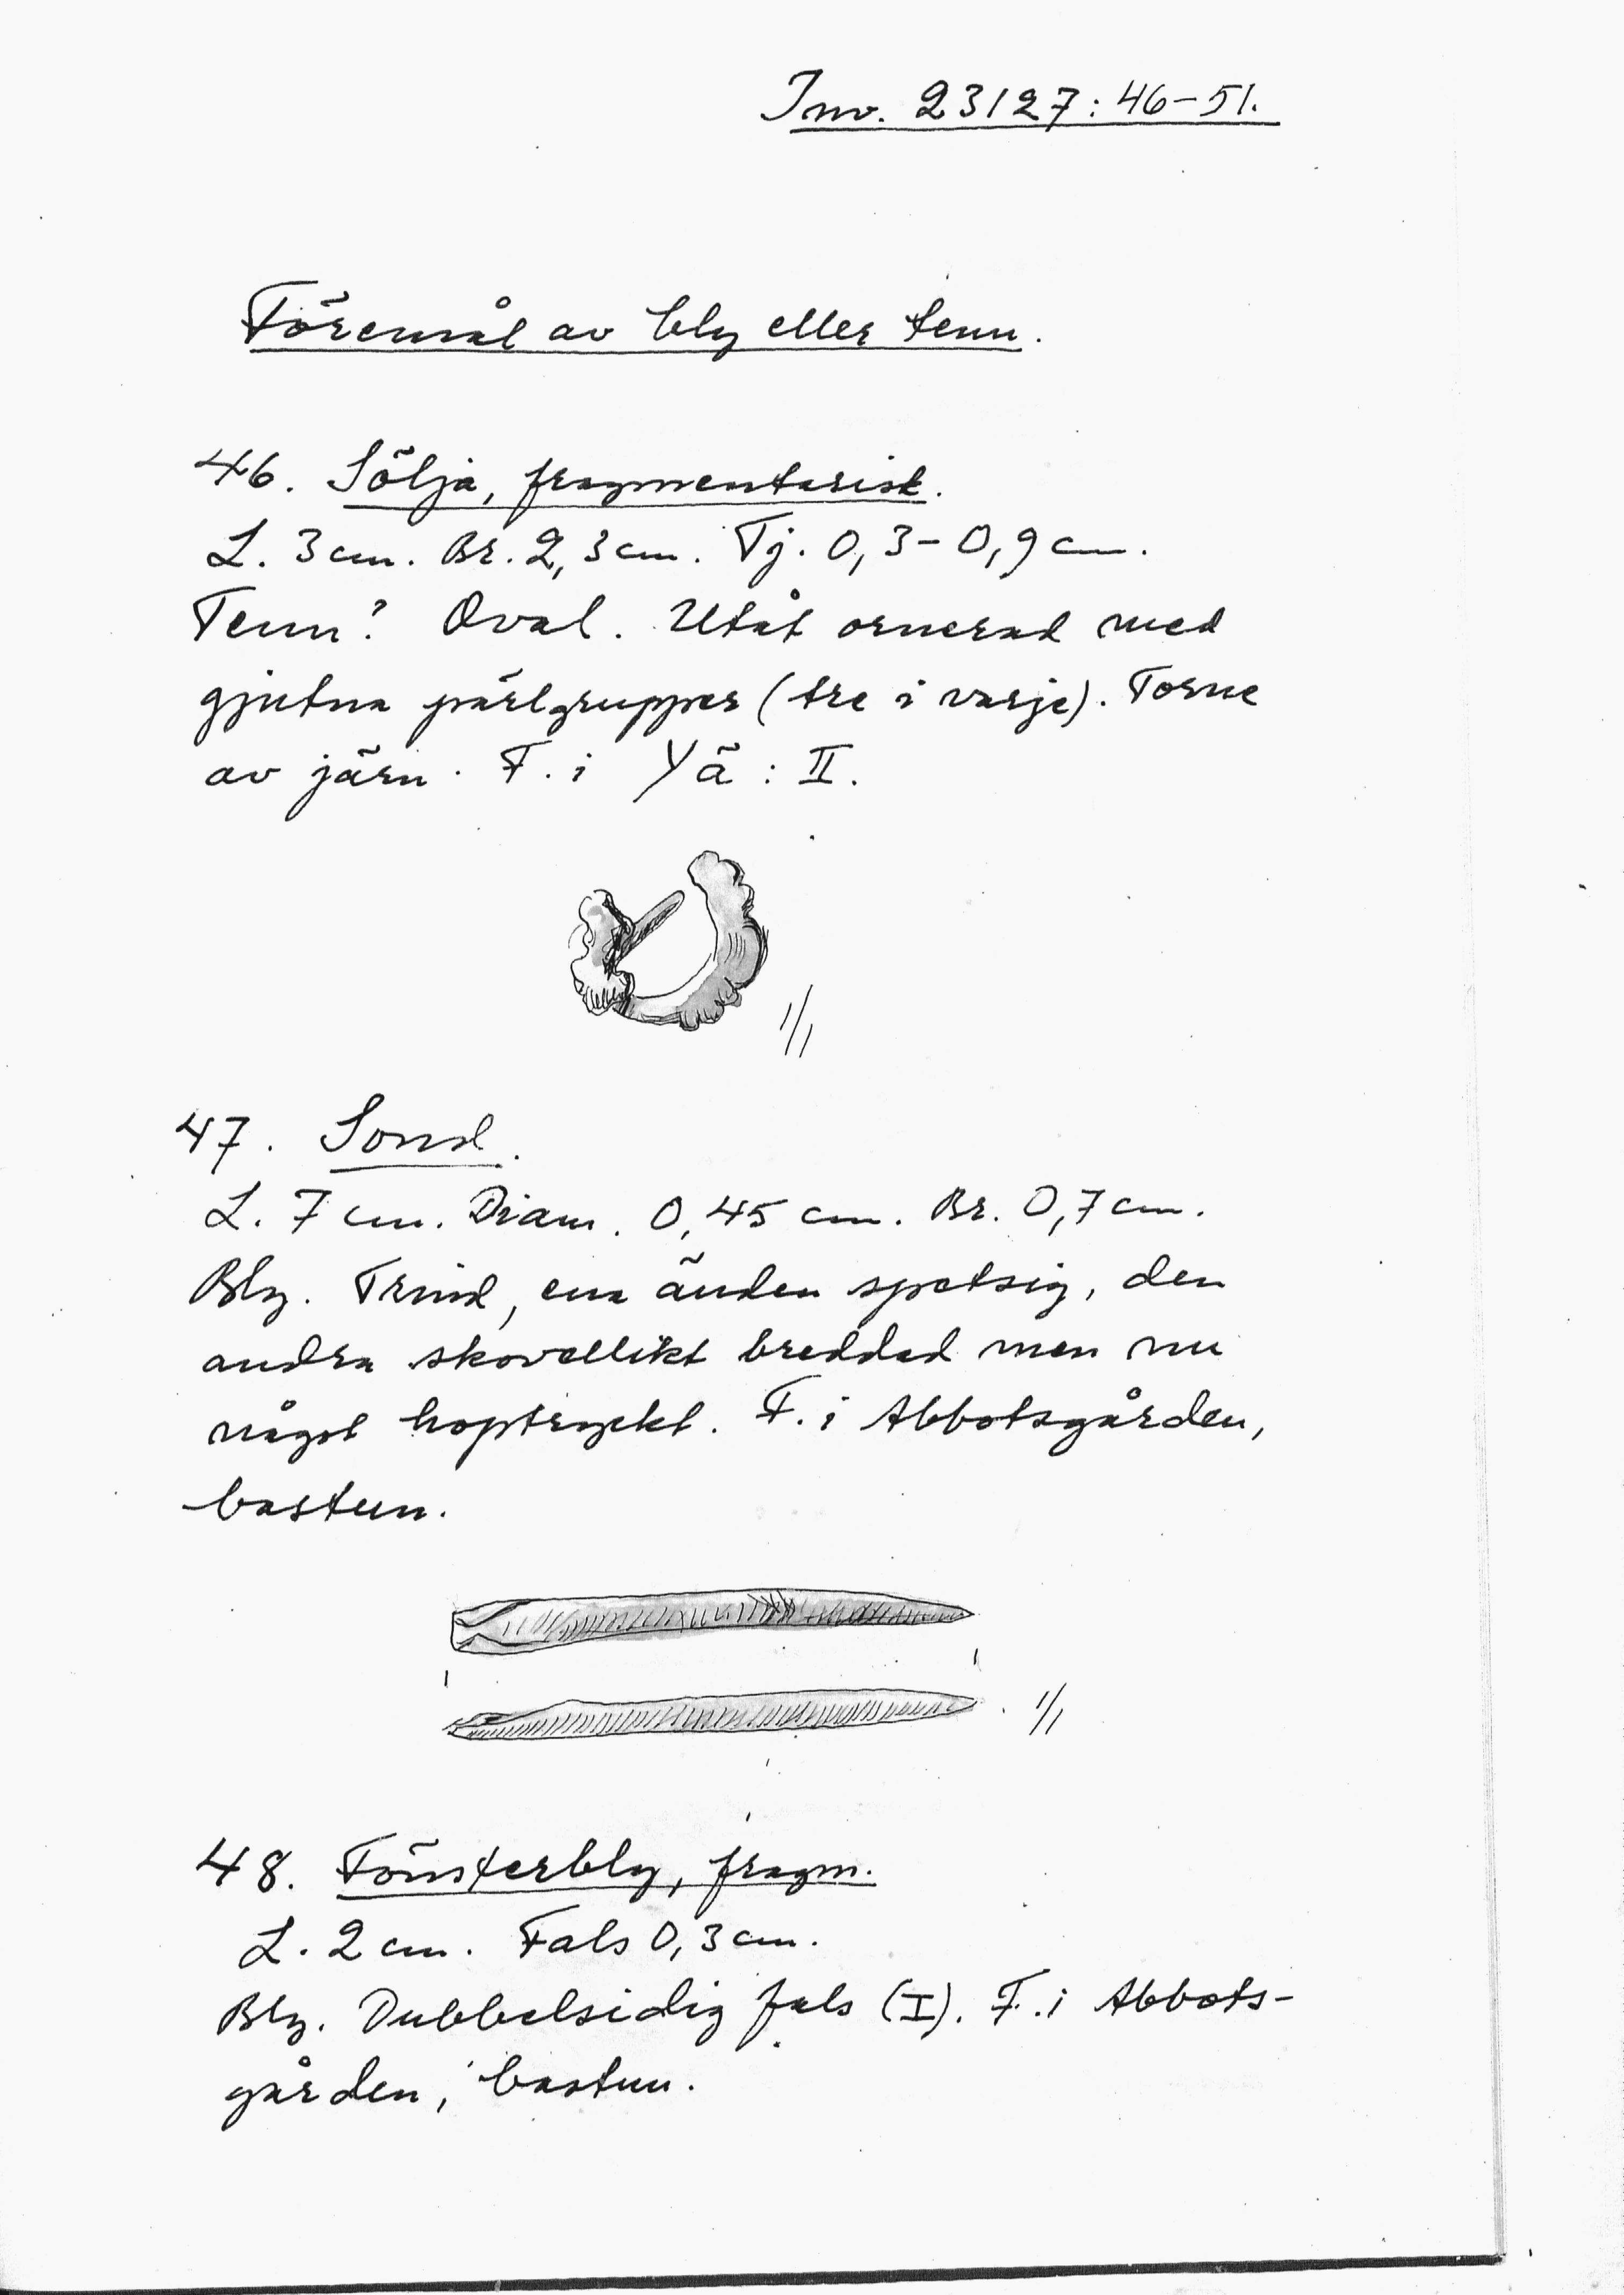 Inv. 23127: 46–51.
Föremål av bly eller tenn.
46. Sölja, fragmentarisk.
L. 3 cm. Br. 2,3 cm. Tj. 0,3–0,9 cm.
Tenn? Oval. Utåt ornerad med
gjutna pärlgrupper (tre i varje). Torne
av järn. F. i Yä: II.
1/1
47. Sond.
L. 7 cm. Diam. 0,45 cm. Br. 0,7 cm.
Bly. Trind, ena änden spetsig, den
andra skovellikt breddad men nu
något hoptryckt. F. i Abbotsgården,
bastun.
1/1
48. Fönsterbly, fragm.
L. 2 cm. Fals 0,3 cm.
Bly. Dubbelsidig fals (I). F. i Abbots-
gården, bastun.